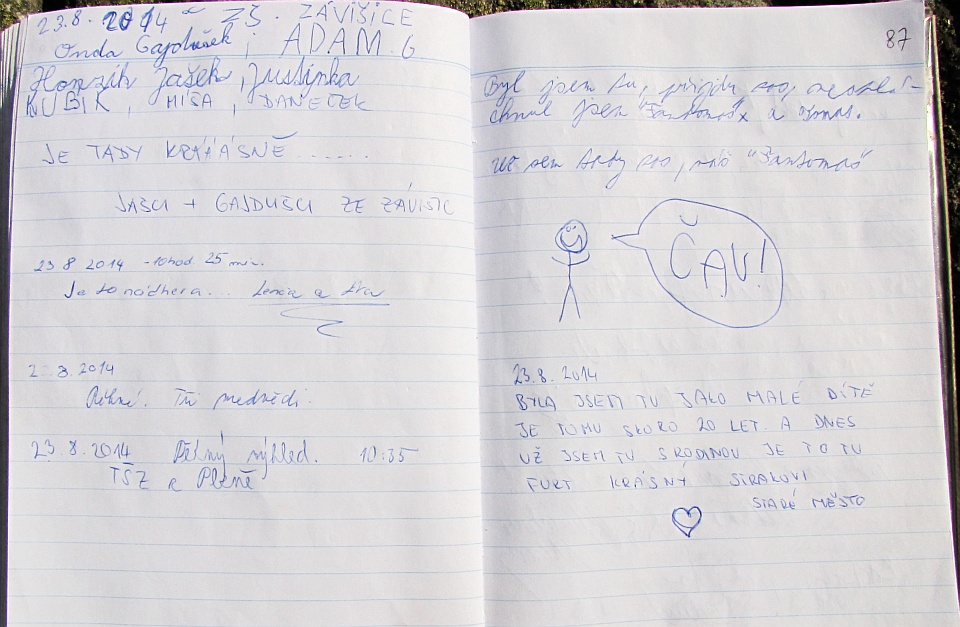 23.8. 2014 ZŠ. ZÁVIŠICE
Onda Gajdušek, ADAM G
Honzík Jašek, Justinka
KUBÍK, MÍŠA, DANEČEK
JE TADY KRÁÁÁSNĚ......
JAŠCI + GAJDUŠCI ZE ZÁVIŠIC
23 8 2014 - 10 hod 25 min.
Je to nádhera... Lenča a
2 .8.2014
Pěkné. Tři medvědi.
23.8.2014 Pěkný výhled. 10:35
TŠZ z Plzně
87
Byl jsem tu,
jsem "Fantomas" a
sem tady "Fantomas"
ČAU!
23.8.2014
BYLA JSEM TU JAKO MALÉ DÍTĚ
JE TOMU SKORO 20 LET A DNES
UŽ JSEM TU S RODINOU JE TO TU
FURT KRÁSNÝ STRAKOVI
STARÉ MĚSTO